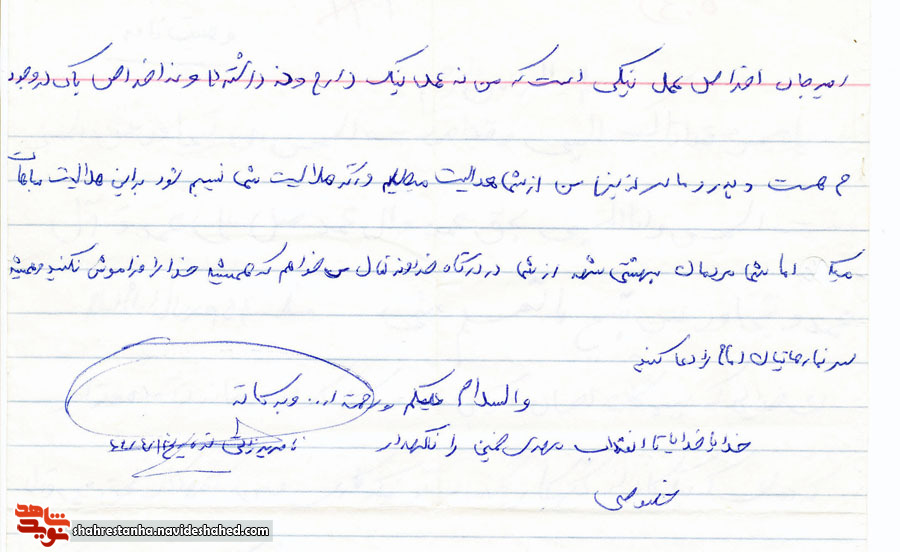 امیر جان اخلاص عمل نیکی است که من نه عمل نیک دارم و نه داشته‌ام و نه اخلاص پاک در وجود
م هست و پدر و مادر عزیزم من از شما حلالیت میطلبم و اگر حلالیت شما نصیبم شود به این حلالیت مباهات
میکنم اما شما مردمان بهشتی شهر از شما در درگاه خداوند تعال می خواهم که همیشه خدا را فراموش نکنید و همیشه
سر نمازهایتان امام را دعا کنید
والسلام علیکم و رحمت ا... وبرکاته
خدایا خدایا تا انقلاب مهدی خمینی را نگهدار
خصوصی
نوید شاهد
shahrestanha.navideshahed.com